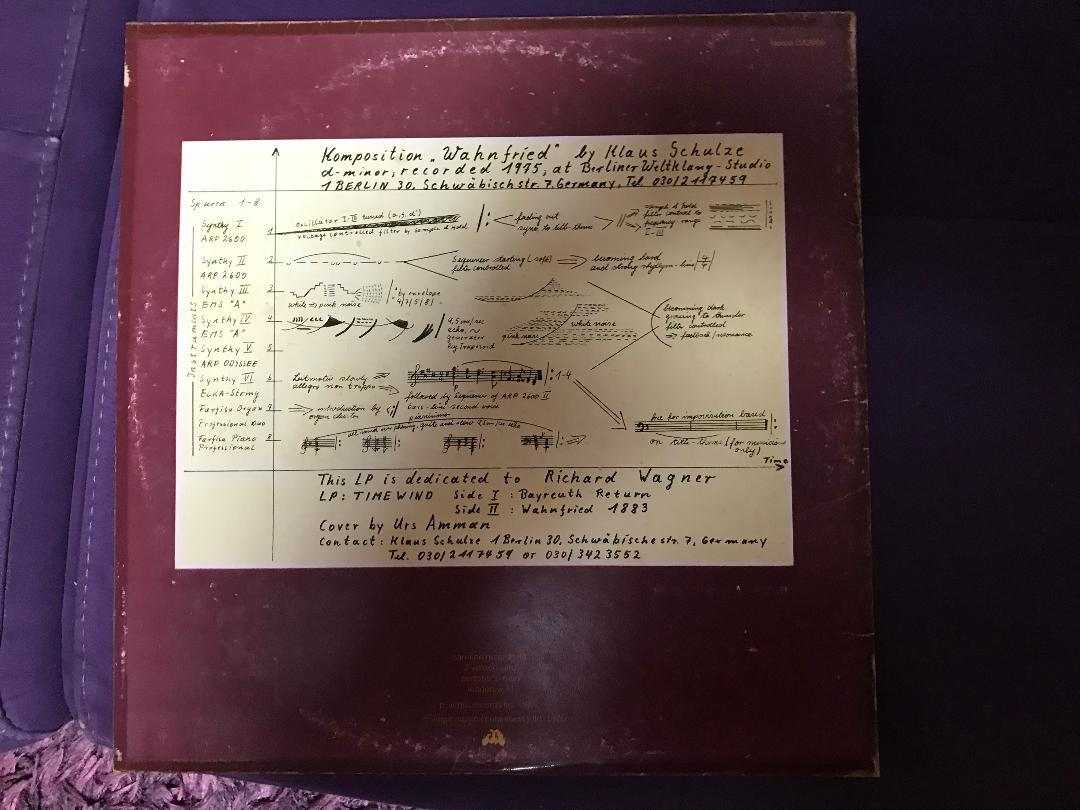 Komposition „Wahnfried" by Klaus Schulze
d-minor, recorded 1975, at Berliner Weltklang-Studio
1 BERLIN 30, Schwäbischstr. 7, Germany, Tel 030/2117459
Spuren 1-8
Instruments
Synthy I
ARP 2600
1
oscillator I-III tuned (a, g, d')
voltage controlled filter by sample & hold
fading out
sync to title-theme
sample & hold
filter control to
frequency range
I-III
Synthy II
ARP 2600
2
Sequencer starting (soft)
filter controlled
becoming loud
and strong rhythym-line
Synthy III
EMS "A"
3
white → pink noise
by envelope
4/7/5/8/
Synthy IV
EMS "A"
4
4,5 ms/sec
echo
generator
by trapezoid
white noise
pink noise
becomming dark
growing to thunder
filter controlled
→ feedback/resonance
Synthy V
ARP ODYSSEE
5
Synthy VI
ELKA-String
6
Leitmotiv slowly
allegro non troppo
:1-4
followed by Sequencer of ARP 2600 II
bass-line second voice
Farfisa Organ
Professional Duo
7
introduction by
organ cluster
pianissimo
Farfisa Piano
Professional
8
free for improvisation based
on title-theme (for musicians
only)
Time
This LP is dedicated to Richard Wagner
LP: TIMEWIND Side I : Bayreuth Return
Side II : Wahnfried 1883
Cover by Urs Amman
Contact: Klaus Schulze 1 Berlin 30, Schwäbische str. 7, Germany
Tel. 030/2117459 or 030/3423552